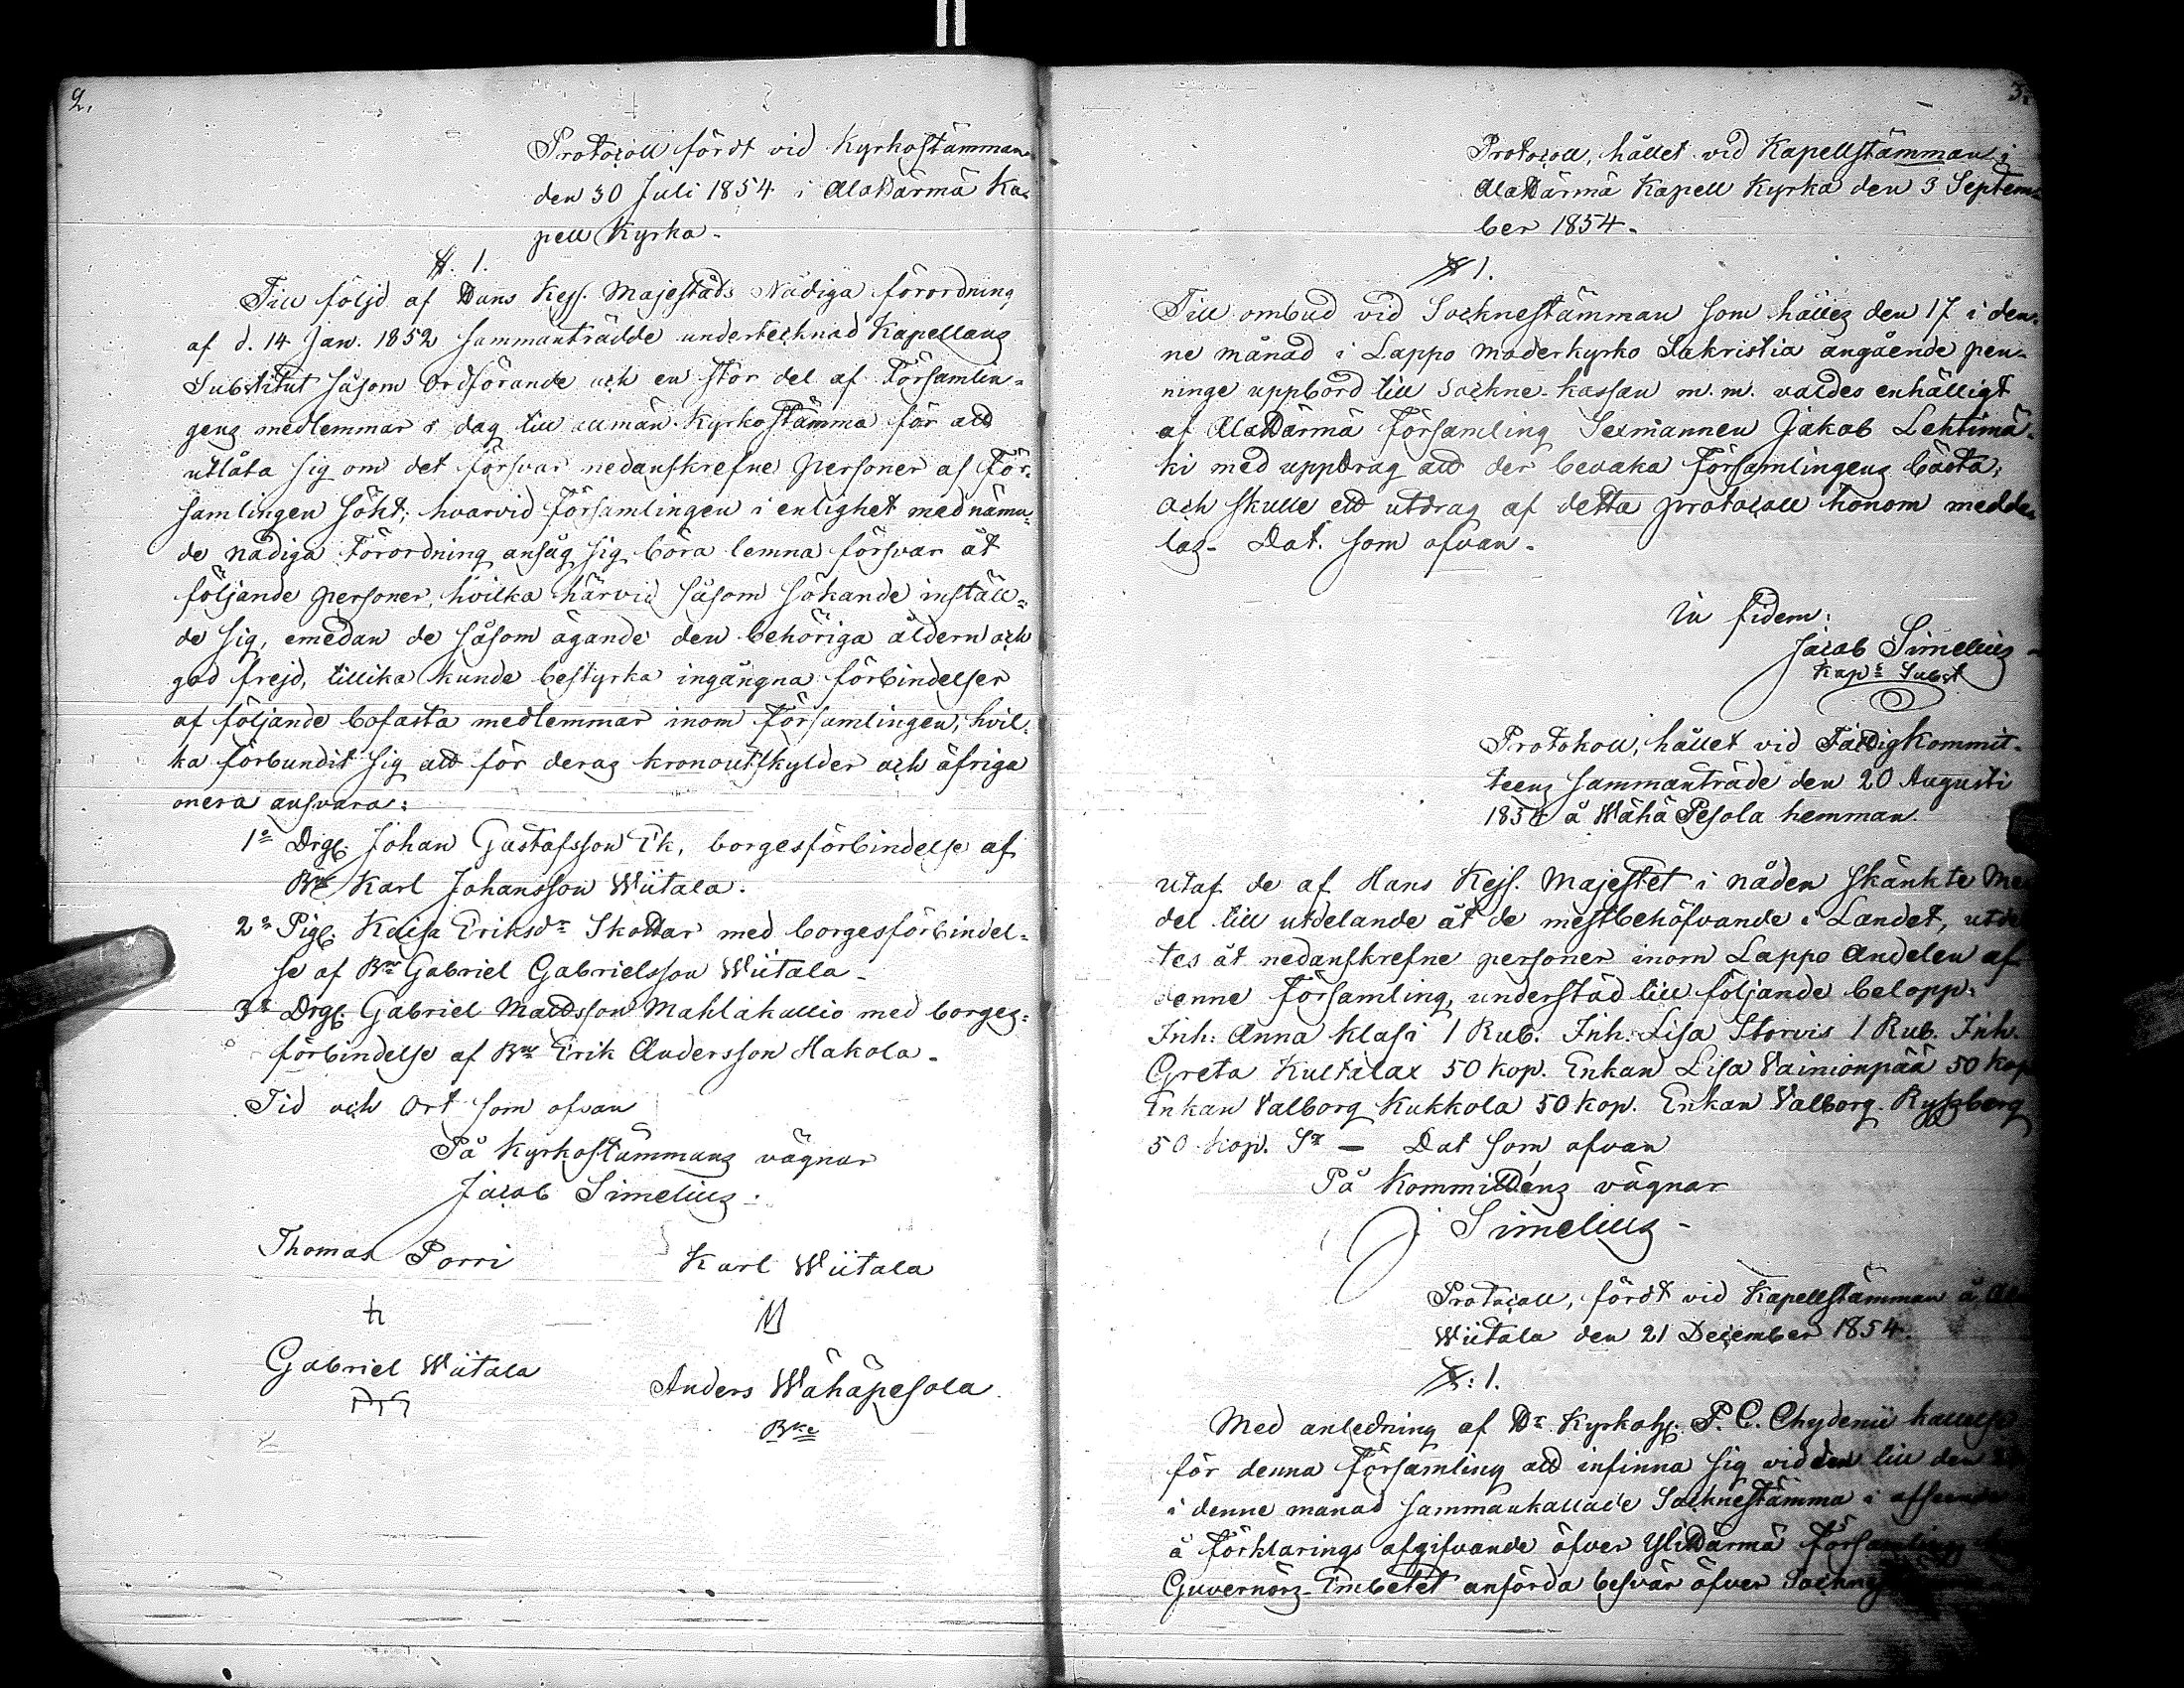 2.
Protocoll fördt vid Kyrkostämman
den 30 Juli 1854 i AlaHärmä Ka-
pell Kyrka.
§. 1.
Till följd af Hans Kejs. Majestäts Nådiga förordning
af d. 14 Jan. 1852 sammanträdde undertecknad Kapellans
Substitut såsom Ordförande och en stor del af Församlin-
gens medlemmar i dag till allmän Kyrkostämma för att
utlåta sig om det försvar nedanskrefne personer af För-
samlingen sökt; hvarvid Församlingen i enlighet med nämn-
de nådiga Förordning ansåg sig böra lemna försvar åt
följande personer, hvilka härvid såsom sökande inställ-
de sig, emedan de såsom ägande den behöriga åldern och
god frejd, tillika kunde bestyrka ingångna förbindelser
af följande bofasta medlemmar inom Församlingen, hvil-
ka förbundit sig att för deras kronoutskylder och öfriga
onera ansvara:
1o Drg. Johan Gustafsson Ek, borgesförbindelse af
Bn Karl Johansson Wiitala.
2o Pig. Kaisa Eriksdr Skottar med borgesförbindel-
se af Bn Gabriel Gabrielsson Wiitala.
3o Drg. Gabriel Mattsson Mahlakallio med borges-
förbindelse af Bn Erik Andersson Hakola.
Tid och Ort som ofvan
På Kyrkostämmans vägnar
Jacob Simelius.
Thomas Porri Karl Wiitala
Gabriel Wiitala Anders Wähäpesola.
Bke
3.
Protocoll, hållet vid Kapellstämman i
AlaHärmä Kapell Kyrka den 3 Septem-
ber 1854.
§ 1.
Till ombud vid Socknestämman som hålles den 17 i den-
ne månad i Lappo moderkyrko Sakristia angående pen-
ninge uppbörd till Sockne-kassan m. m. valdes enhälligt
af AlaHärmä Församling Sexmannen Jakob Lehtimä-
ki med uppdrag att der bevaka Församlingens bästa;
och skulle ett utdrag af detta protocoll honom medde-
las. Dat. som ofvan.
In fidem:
Jacob Simelius
Kaps Subst
Protokoll, hållet vid Fattigkommit-
teens sammanträde den 20 Augusti
1854 å Wähä Pesola hemman.
Utaf de af Hans Kejs. Majestet i nåden skänkte Me
del till utdelande åt de mestbehöfvande i Landet, utde
tes åt nedanskrefne personer inom Lappo Andelen af
denne Församling, understöd till följande belopp:
Inh: Anna Klasi 1 Rub. Inh: Lisa Storvis 1 Rub. Inh.
Greta Kultalax 50 kop. Enkan Lisa Vainionpää 50 kop
Enkan Valborg Kukkola 50 kop. Enkan Valborg Ryssberg
50 kop. Sr — Dat som ofvan
På Kommitténs vägnar
J Simelius
Protocoll, fördt vid Kapellstämman å Ala
Wiitala den 21 December 1854.
§: 1.
Med anledning af Hr Kyrkoh. P. C. Chydenii kallelse
för denna Församling att infinna sig vid den till den
i denne månad sammankallade Socknestämma i afseende
å Förklarings afgifvande öfver YliHärmä Församlings
Guvernörs-Embetet anförda besvär öfver